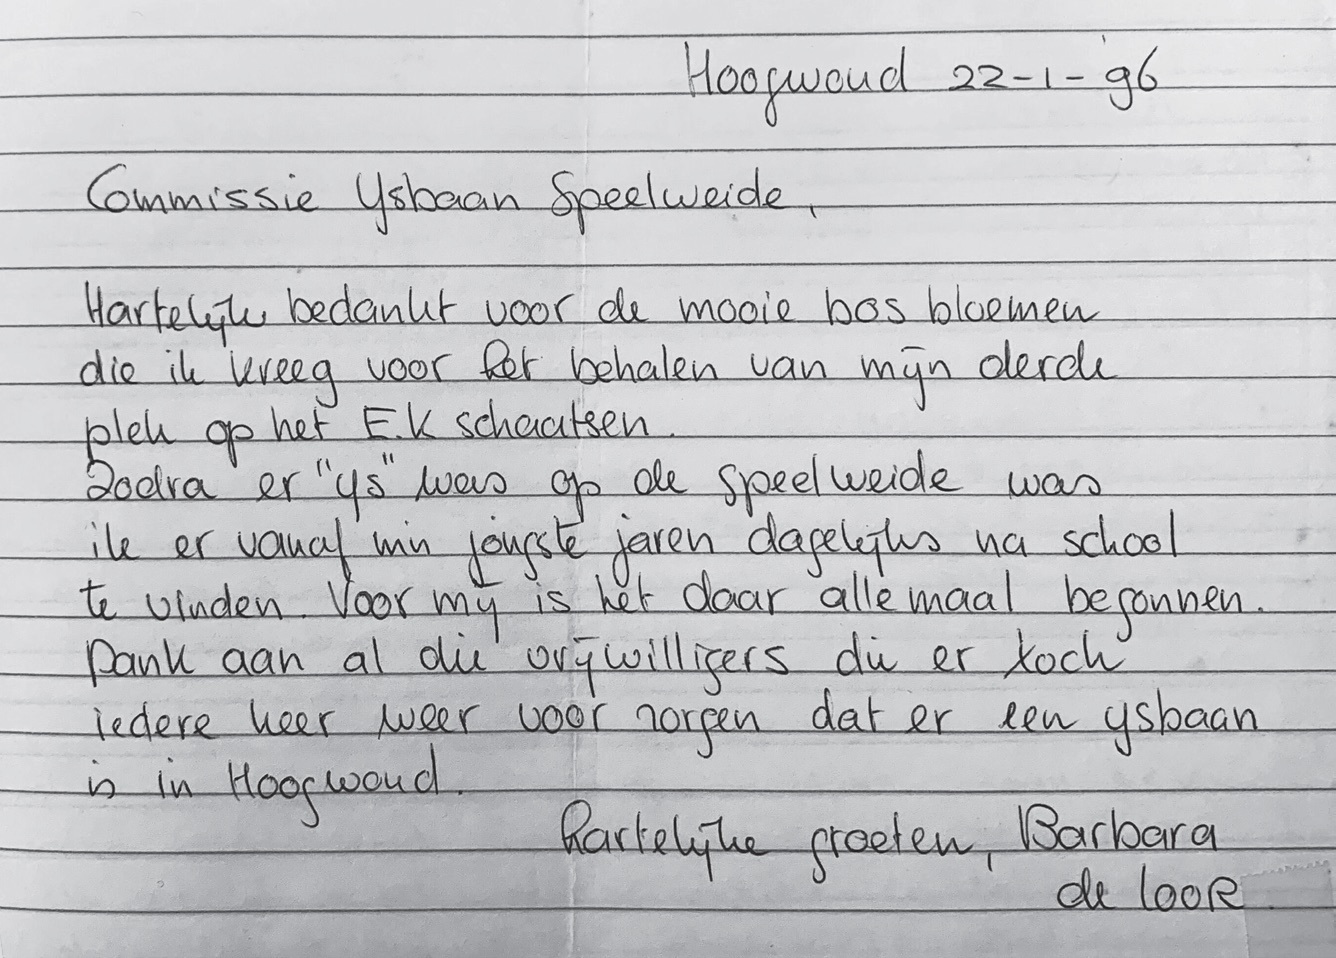 Hoogwoud 22-1-'96
Commissie Ysbaan Speelweide,
Hartelijk bedankt voor de mooie bos bloemen
die ik kreeg voor het behalen van mijn derde
plek op het E.K schaatsen.
Zodra er "ys" was op de speelweide was
ik er vanaf mijn jongste jaren dagelijks na school
te vinden. Voor mij is het daar allemaal begonnen.
Dank aan al die vrijwilligers die er toch
iedere keer weer voor zorgen dat er een ysbaan
is in Hoogwoud.
Hartelijke groeten, Barbara
de Loor